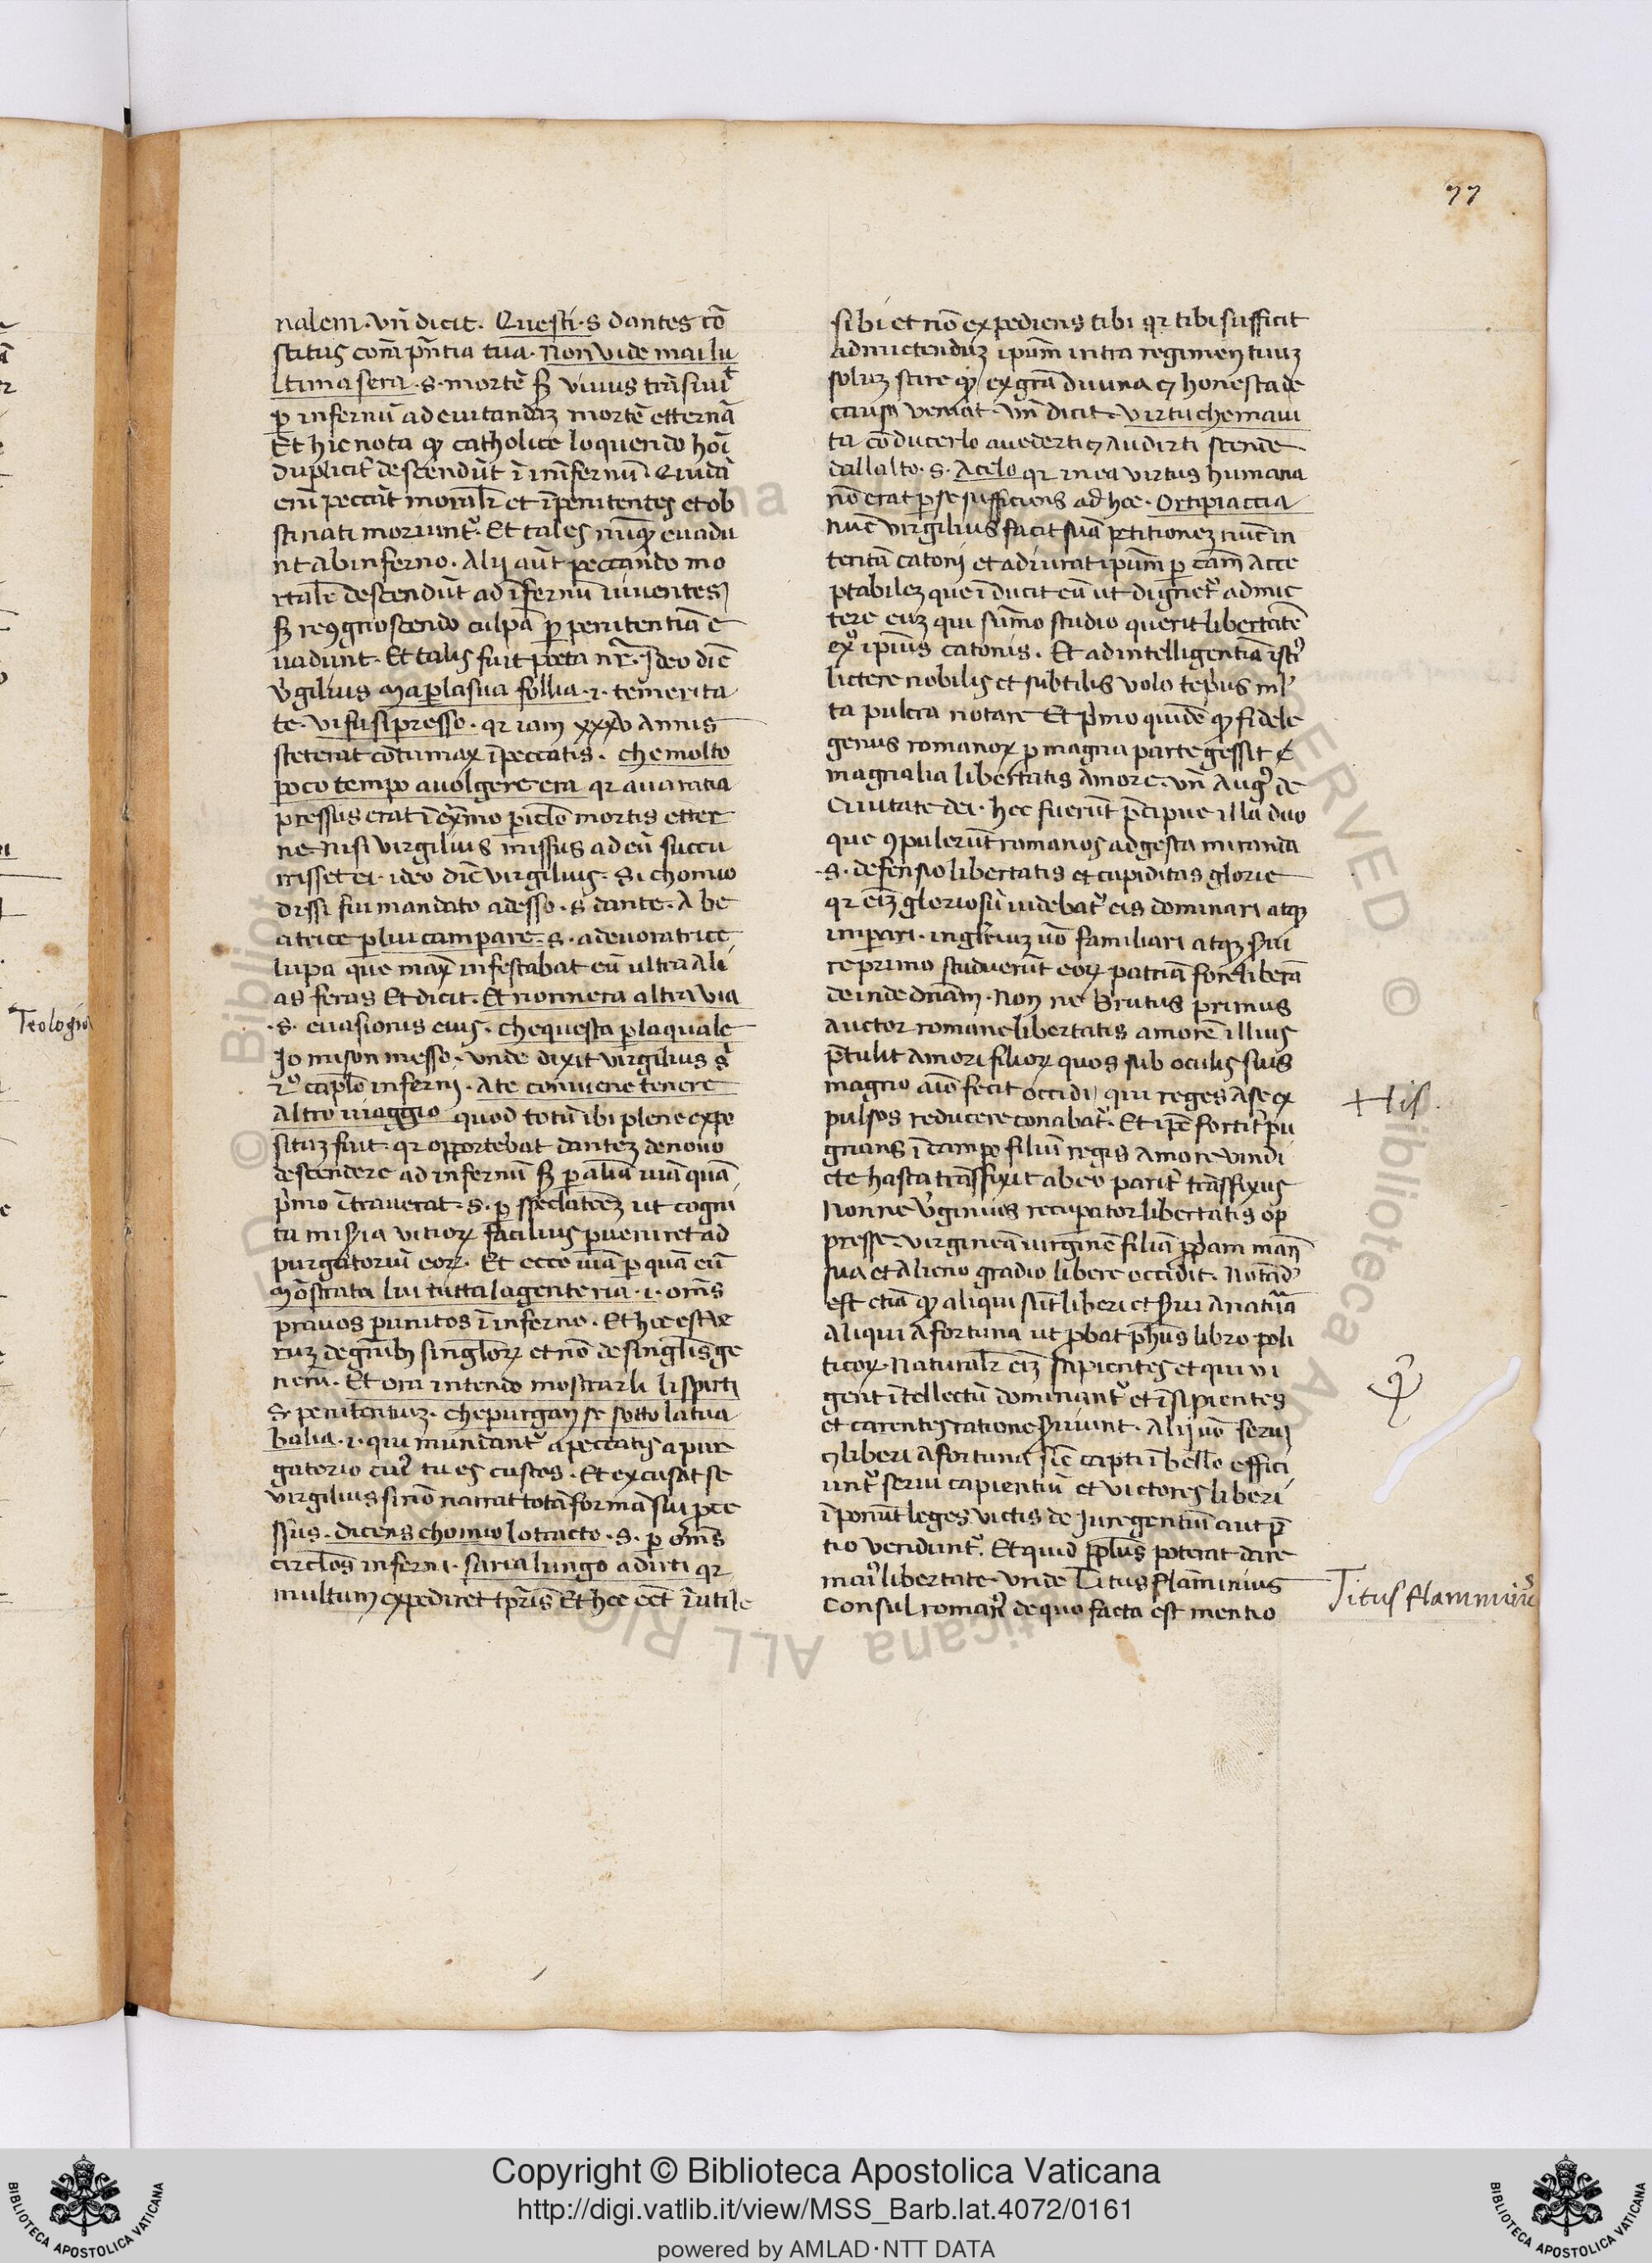 77
nalem. vn̄ dicit. Questi. s dantes cō
stitus com̄ pn̄tia tua. Non vide mai lu
ltima sera. s. mortē sꝫ viuus trāsiuit
ꝑ infernū ad euitandaꝫ mortē etternā
Et hic nota qꝫ catholice loquendo hoı̄
duplicit᾿ descendūt ī inīfernū. Quidā
enī peccāt mortalr et īpenitentes et ob
stinati moriunt᾿. Et tales nūqꝫ euadu
nt ab inferno. Alij aūt peccando mo
rtalē descendūt ad īfernū uiuentes
sꝫ recognoscendo culpā ꝑ penitentiā e
uadunt. Et talis fuit poeta nr̄. Ideo dic̄
v᾿gilius Ma ꝑ la sua follia. i. temerita
te. vi fu si presso. qr iam xxxv annis
steterat cōtumax ī peccatis. che molto
poco tempo auolgere era qr auaritia
pressus erat ī exͥmo ꝑiclo mortis etter
ne nisi virgilius missus ad eū succu
risset ei. ideo dic̄ virgilius. Si chomio
dissi fui mandato adesso. s dante. A be
atrice ꝑ lui campare. s. a deuoratrice
lupa que max̄ infestabat eū ultra ali
as feras Et dicit. Et non nera altra via
.s. euasionis eius. che questa ꝑ la quale
Jo mi son messo. vnde dixit virgilius s᾿
i° caplo inferni. A te conuiene tenere
altro uiaggio quod totū ibi plene expo
situꝫ fuit. qr opportebat danteꝫ denouo
descendere ad infernū sꝫ ꝑ aliā uiā quā
pͥmo ītrauerat. s. ꝑ speclatōeꝫ ut cogni
ta miſ᾿ia vitioꝝ facilius ꝑueniret ad
purgatoriū eoꝝ. Et ecce uiā ꝑ quā eū
Mōstrata lui tutta la gente ria. i. om̄s
prauos punitos ī inferno. Et hoc est ve
ruꝫ de gn̄ibꝫ singloꝝ et nō de singlis ge
neru᾿. Et ora intendo mostrarli li spirti
s. penitentiuꝫ. che purgan se sotto la tua
balia. i. qui mundant᾿ a peccatis a pur
gatorio cui᾿ tu es custos. Et excusāt se
virgilius si nō narrat totā formā sui ꝓce
ssus. dicens chomio lo tracto. s. ꝑ om̄s
circlos inferni. saria lungo a dirti qr
multum expediret tpr̄is Et hoc eēt īutile
sibi et nō expediens tibi qr tibi sufficit
admictenduꝫ ipum intra regimen tuuꝫ
soluꝫ scire qꝫ ex grā diuina ꝫ honesta de
causa veniat. vn̄ dicit. virtu che maui
ta cōducerlo a uederti ꝫ audirti scende
dallalto. s. A celo qr mea virtus humana
nō erat ꝑ se sufficiens ad hoc. Or ti piaccia
nūc virgilius facit suā petitioneꝫ nūc in
tentā catoni et adiurat ipum ꝑ cām acce
ptabileꝫ que īducit eū ut dignet᾿ admic
tere euꝫ qui sūmo studio querit libertatē
exo ipius catonis. Et ad intelligentiā isti᾿
lictere nobilis et subtilis volo tep᾿us ml᾿
ta pulcra notare Et pͥmo quidē qꝫ fidele
genus romanoꝝ ꝑ magna parte gessit
magnalia libertatis amore. vn̄ Aug᾿ de
Ciuitate dei. hec fuerūt pͥcipue illa duo
que ꝯpulerūt romanos ad gesta miranda
.s. defensio libertatis et cupiditas glorie
qr eīꝫ gloriosū uidebat᾿ eis dominari atqꝫ
imꝑari. ingloriuꝫ vō familiari atqꝫ s᾿ui
re primo studuerūt eoꝝ patriā fore liberā
deinde dn̄am. Non ne Brutus primus
auctor romane libertatis amorē illius
pͥtulit amori filioꝝ quos sub oculis suis
magno aīo fecit occidi qui reges a se ex
pulsos reducere conabāt᾿. Et ipe fortit᾿ pu
gnans ī campo filiū regis amore vindi
cte hasta trāsfixit ab eo parit᾿ trāsfixus
Non ne v᾿ginius recuꝑator libertatis op
presse. virgineā uirginē filiā ꝓpriam manu
sua et alieno gradio libere occidit. Notād᾿
est etiā qꝫ aliqui sūt liberi et s᾿ui a natura
aliqui a fortuna ut ꝓbat phus libro poli
ticoꝝ. Naturalr eīꝫ sapientes et qui vi
gent ītellectu dominant᾿ et īsipientes
et carentes ratione s᾿uiunt. Alij vō serui
ꝫ liberi a fortuna sic̄ capti ī bello effici
unt᾿ serui capientiū et victores liberi
īponūt leges victis de iure gentiū aut pͥ
tio vendunt᾿. Et quid pplus poterat dare
mai᾿ libertate. vnde Titus flaminius
Consul roman᾿ de quo facta est mentio
Teologia
His.
Titus flamminius
Copyright © Biblioteca Apostolica Vaticana
http://digi.vatlib.it/view/MSS_Barb.lat.4072/0161
powered by AMLAD·NTT DATA
BIBLIOTECA APOSTOLICA VATICANA
BIBLIOTECA APOSTOLICA VATICANA